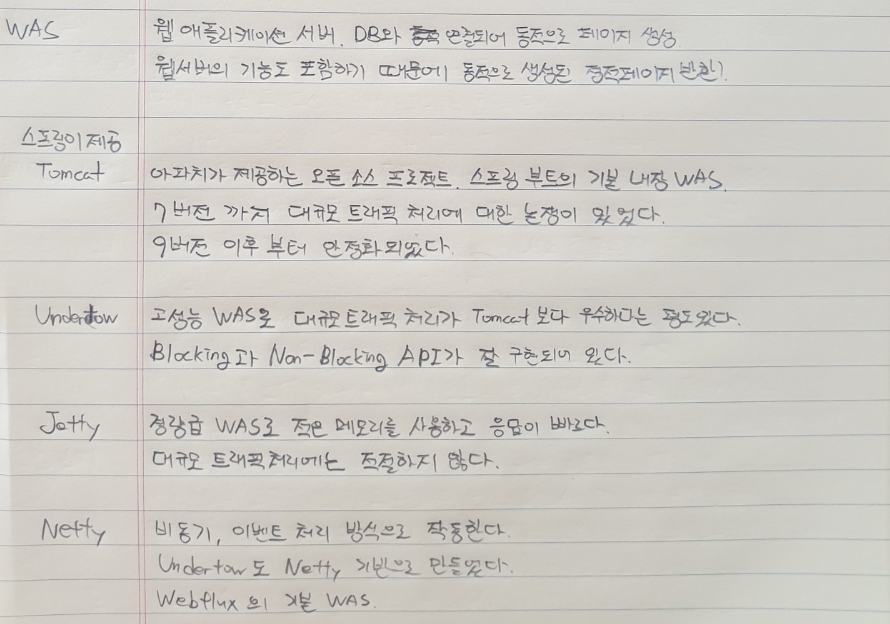 WAS 웹 애플리케이션 서버. DB와 연결되어 동적으로 페이지 생성.
웹서버의 기능도 포함하기 때문에 동적으로 생성된 정적페이지 반환?
스프링이 제공
Tomcat 아파치가 제공하는 오픈 소스 프로젝트. 스프링 부트의 기본 내장 WAS.
7버전 까지 대규모 트래픽 처리에 대한 논쟁이 있었다.
9버전 이후 부터 안정화되었다.
Undertow 고성능 WAS로 대규모트래픽 처리가 Tomcat 보다 우수하다는 평도있다.
Blocking과 Non-Blocking API가 잘 구현되어 있다.
Jetty 경량급 WAS로 적은 메모리를 사용하고 응답이 빠르다.
대규모 트래픽처리에는 적절하지 않다.
Netty 비동기, 이벤트 처리 방식으로 작동한다.
Undertow도 Netty 기반으로 만들었다.
Webflux의 기본 WAS.